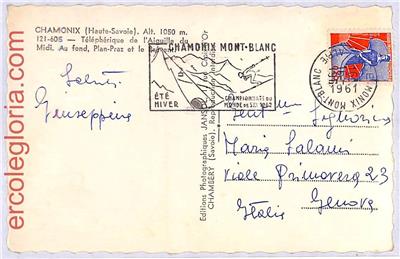 CHAMONIX (Haute-Savoie). Alt. 1050 m.
121-605 — Téléphérique de l'Aiguille du
Midi. Au fond, Plan-Praz et le
CHAMONIX MONT-BLANC
ÉTÉ
HIVER
CHAMPIONNATS DU
MONDE DE SKI 1962
CHAMONIX MONT BLANC
1961
Saluti
Giuseppina
Editions Photographiques JANS
CHAMBERY (Savoie). Reproduction Interdite
Gent.ma Signorina
Maria Salami
Viale Primavera 23
Genova
Italia
ercolegloria.com